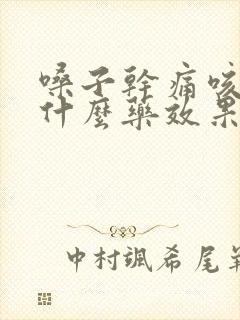 嗓子幹痛咳
什麼藥效果
中村颯希尾